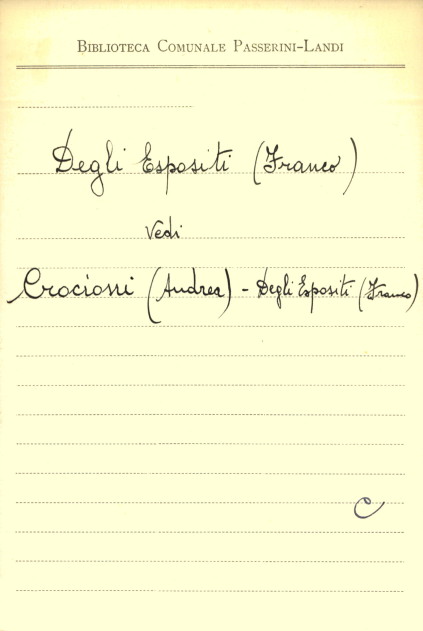 BIBLIOTECA COMUNALE PASSERINI-LANDI
Degli Espositi (Franco)
Vedi
Crocioni (Andrea) - Degli Espositi (Franco)
C